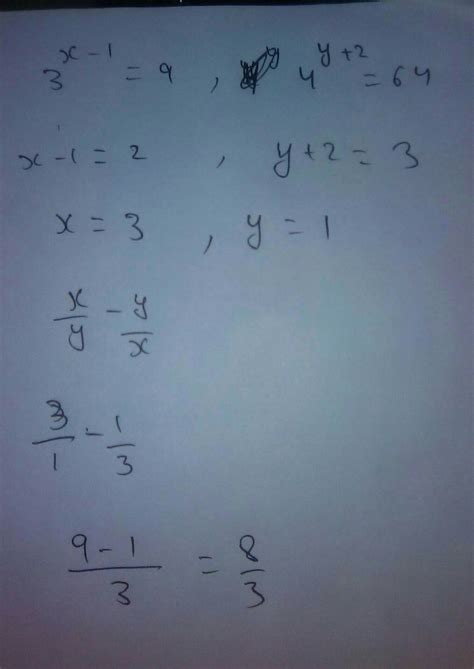 3^{x-1} = 9 , 4^{y+2} = 64
x-1 = 2 , y+2 = 3
x = 3 , y = 1
x/y - y/x
3/1 - 1/3
(9-1)/3 = 8/3